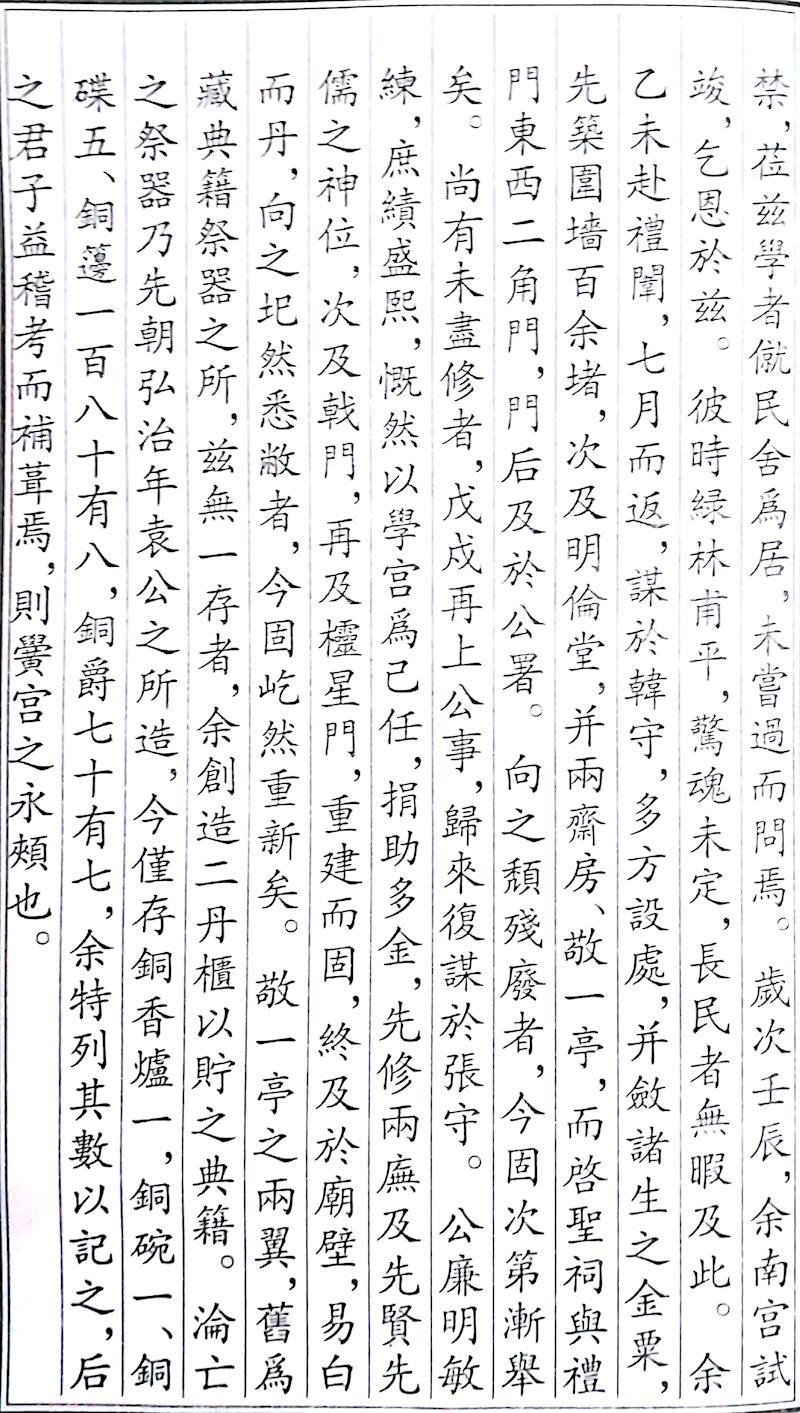 禁，莅兹學者僦民舍爲居，未嘗過而問焉。歲次壬辰，余南宫試
竣，乞恩於兹。彼時緑林甫平，驚魂未定，長民者無暇及此。余
乙未赴禮闈，七月而返，謀於韓守，多方設處，并斂諸生之金粟，
先築圍墻百余堵，次及明倫堂，并兩齋房、敬一亭，而啓聖祠與禮
門東西二角門，門后及於公署。向之頽殘廢者，今固次第漸舉
矣。尚有未盡修者，戊戍再上公事，歸來復謀於張守。公廉明敏
練，庶績盛熙，慨然以學宫爲己任，捐助多金，先修兩廡及先賢先
儒之神位，次及戟門，再及欞星門，重建而固，終及於廟壁，易白
而丹，向之圯然悉敝者，今固屹然重新矣。敬一亭之兩翼，舊爲
藏典籍祭器之所，兹無一存者，余創造二丹櫃以貯之典籍。淪亡
之祭器乃先朝弘治年袁公之所造，今僅存銅香爐一，銅碗一、銅
碟五、銅籩一百八十有八，銅爵七十有七，余特列其數以記之，后
之君子益稽考而補葺焉，則黌宫之永頰也。